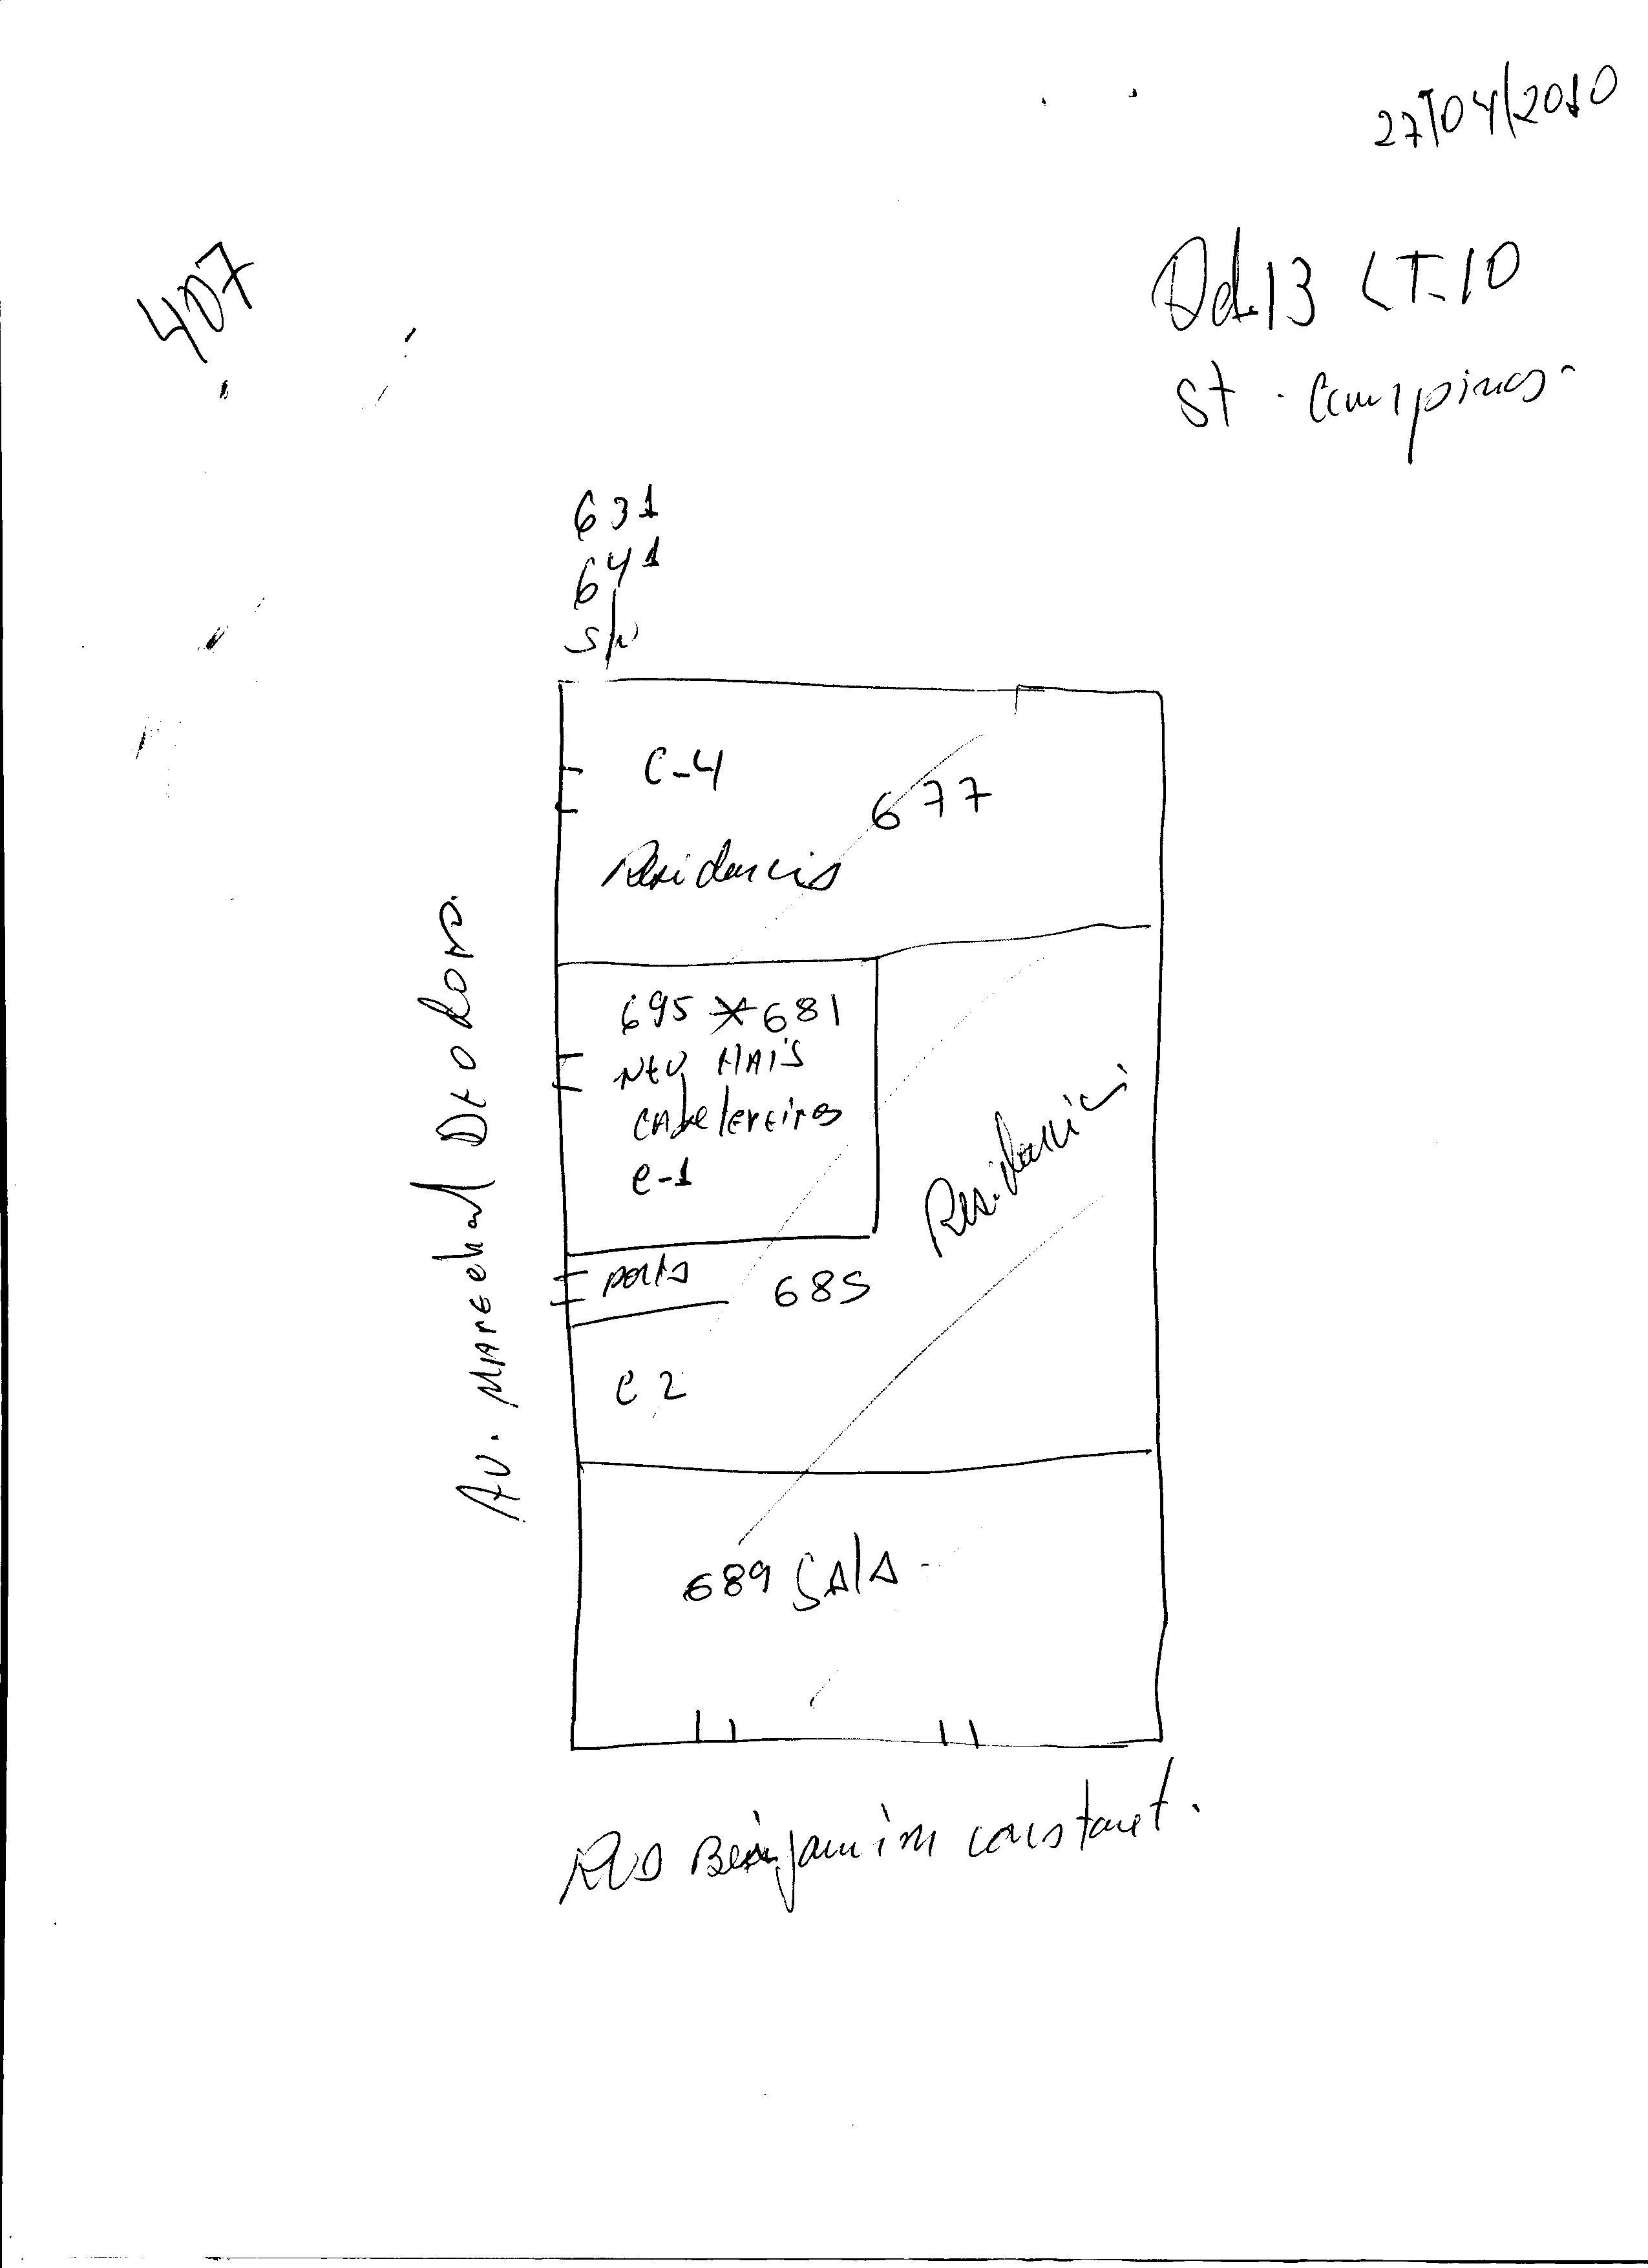 27/04/2010
407
Qd.13 LT-10
St. Campinas
631
641
S/N
C-4
677
Residencia
695 * 681
NEO HAIS
CABELEREIROS
C-1
PORTA
685
Residencia
C 2
689 SALA
Av. MARECHAL DEODORO
RUA Benjamim constant.